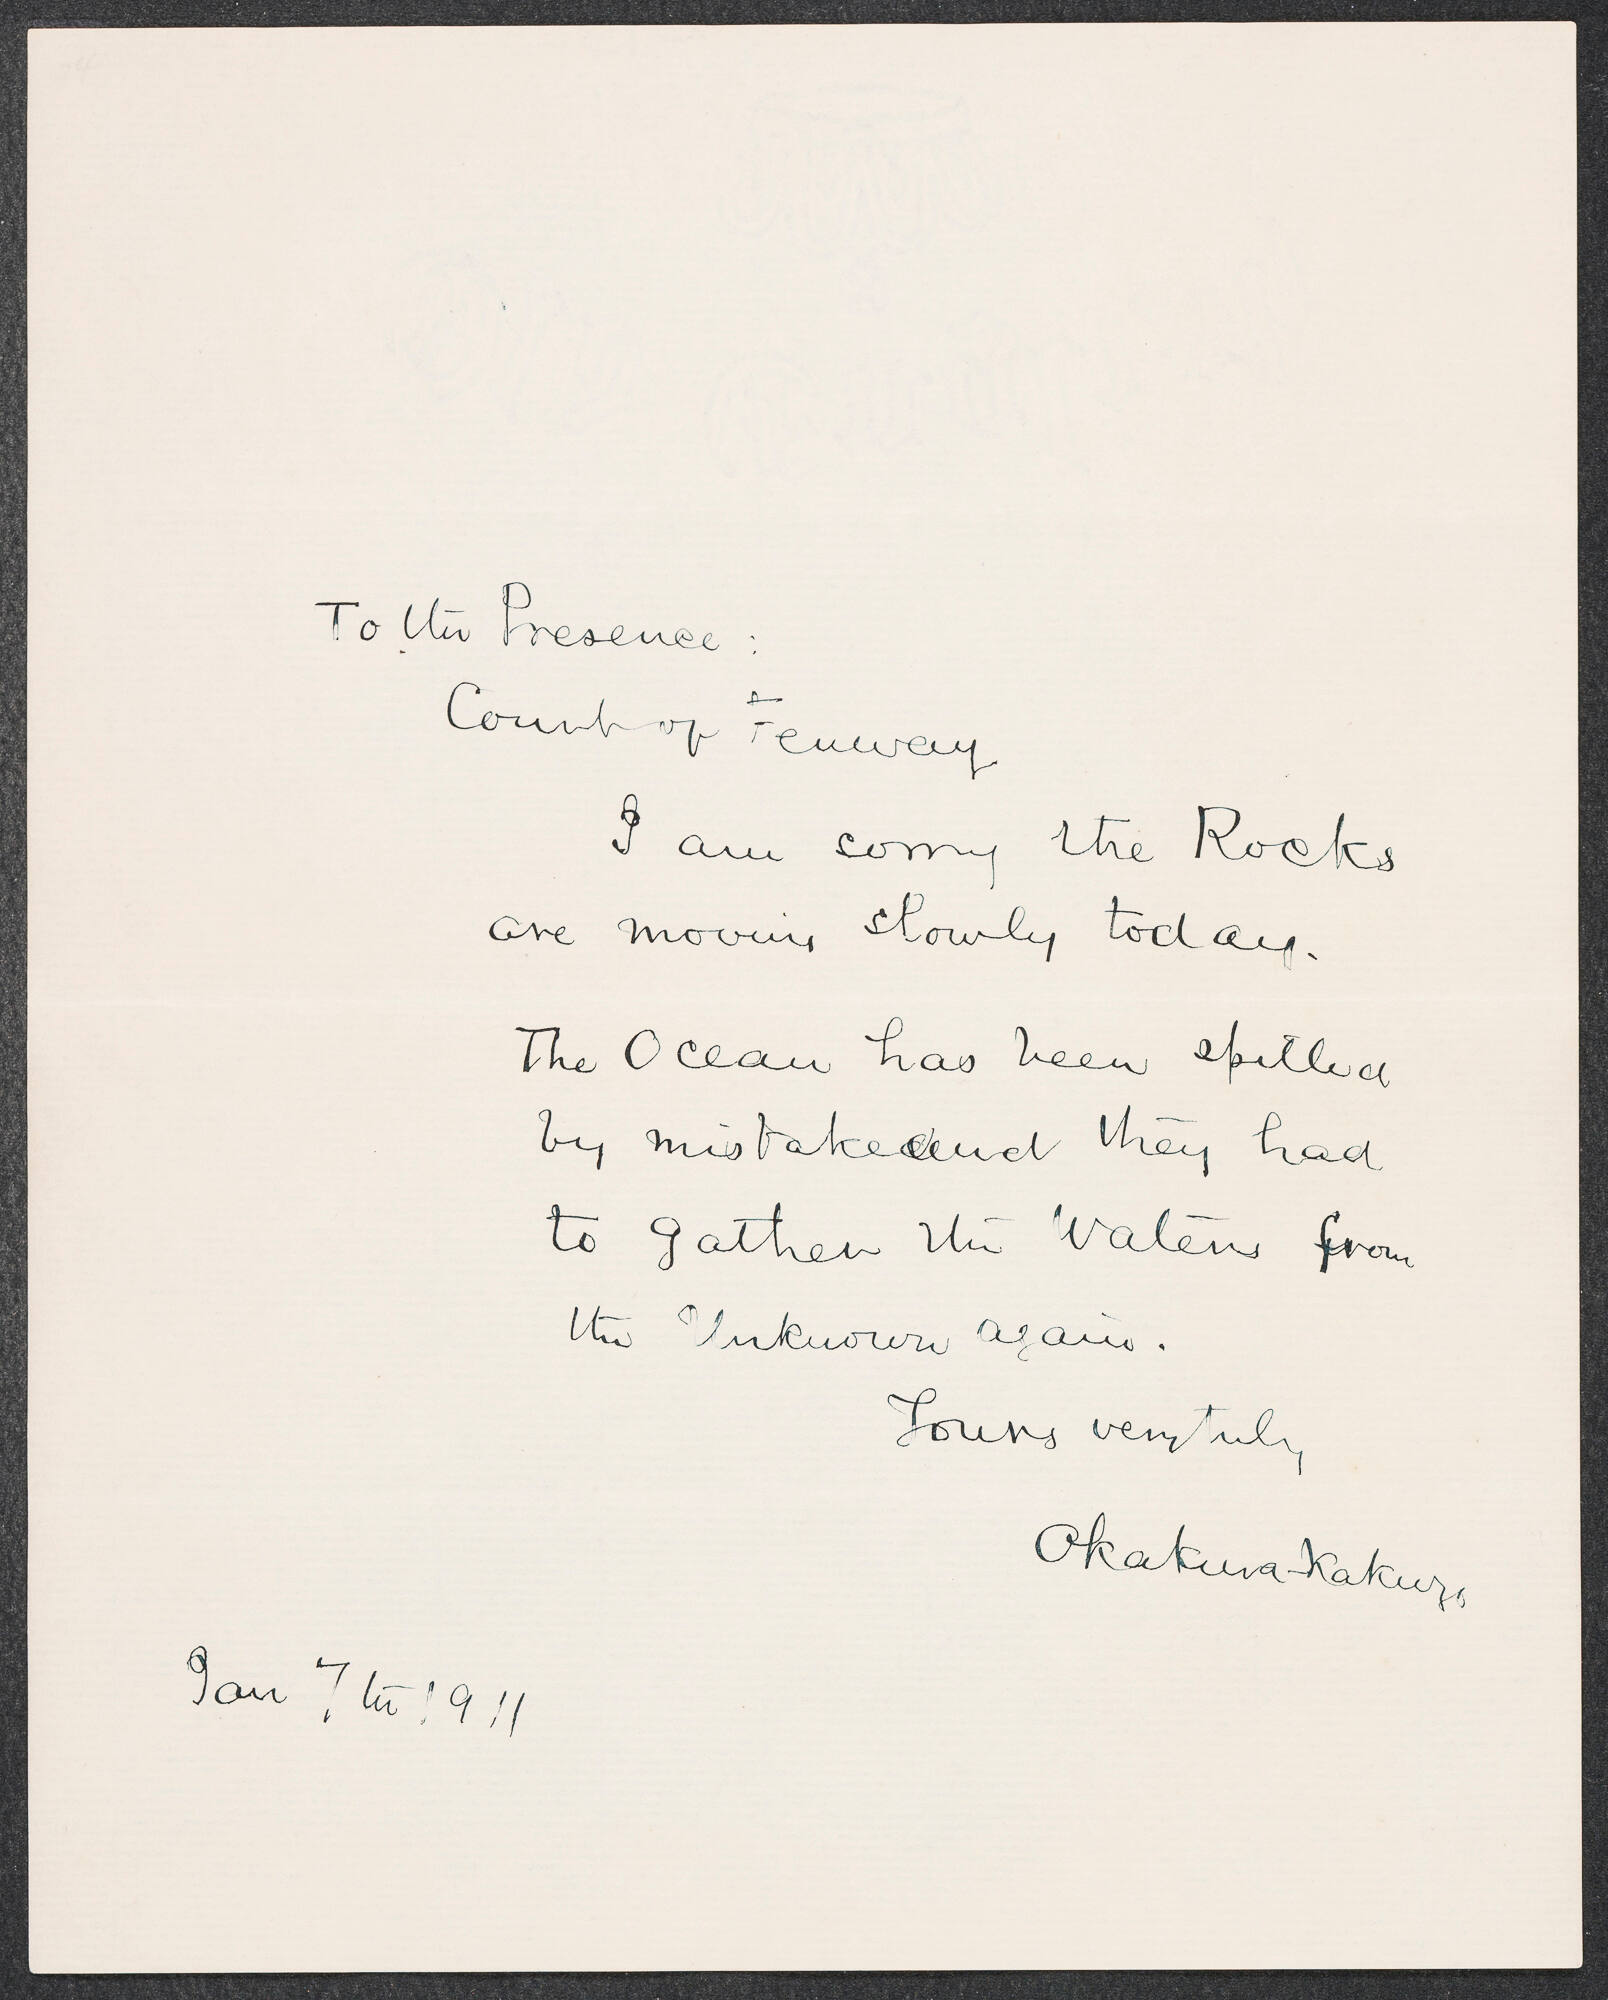 To the Presence :
Court of Fenway
I am sorry the Rocks
are moving slowly today.
The Ocean has been spilled
by mistake and they had
to gather the Waters from
the Unknown again.
Yours very truly
Okakura-Kakuzo
Jan 7th 1911